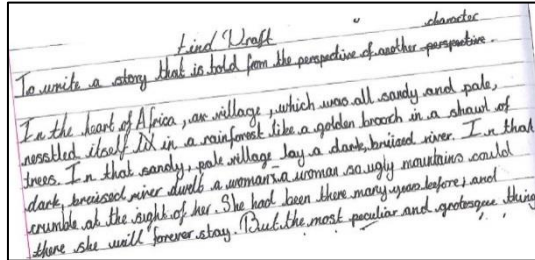 character
Find Draft
To write a story that is told from the perspective of another perspective.
In the heart of Africa, a village, which was all sandy and pale,
nesstled itself in a rainforest like a golden brooch in a shawl of
trees. In that sandy, pale village lay a dark, bruised river. In that
dark, bruised river dwelt a woman: a woman so ugly mountains could
crumble at the sight of her. She had been there many years before; and
there she will forever stay. But the most peculiar and grotesque thing